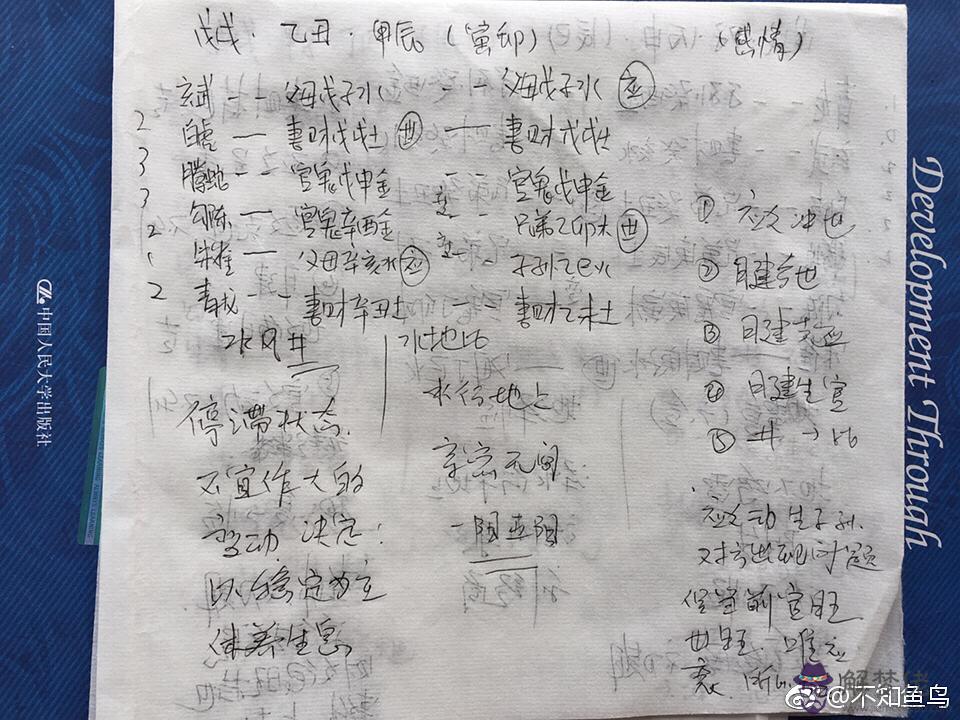 戊戌．乙丑．甲辰（寅卯）（感情）
玄武 -- 父母戊子水 -- 父母戊子水 应
2 白虎 — 妻财戊戌土 世 — 妻财戊戌土
3 腾蛇 -- 官鬼戊申金 -- 官鬼戊申金
3 勾陈 — 官鬼辛酉金 -- 兄弟乙卯木 世
2 朱雀 — 父母辛亥水 应 -- 子孙乙巳火
2 青龙 -- 妻财辛丑土 -- 妻财乙未土
水风井
水地比
停滞状态．
不宜作大的
变动 决定：
以稳定为主
休养生息
水行地上
亲密无间
一阳五阴
① 应爻冲世
② 日建合世
③ 日建克应
④ 日建生官
⑤ 井→比
．应爻动生子孙．
对方出现问题
但当前官旺
世旺．唯应
衰．所以
中国人民大学出版社
Development Through
解梦佬
@不知鱼鸟